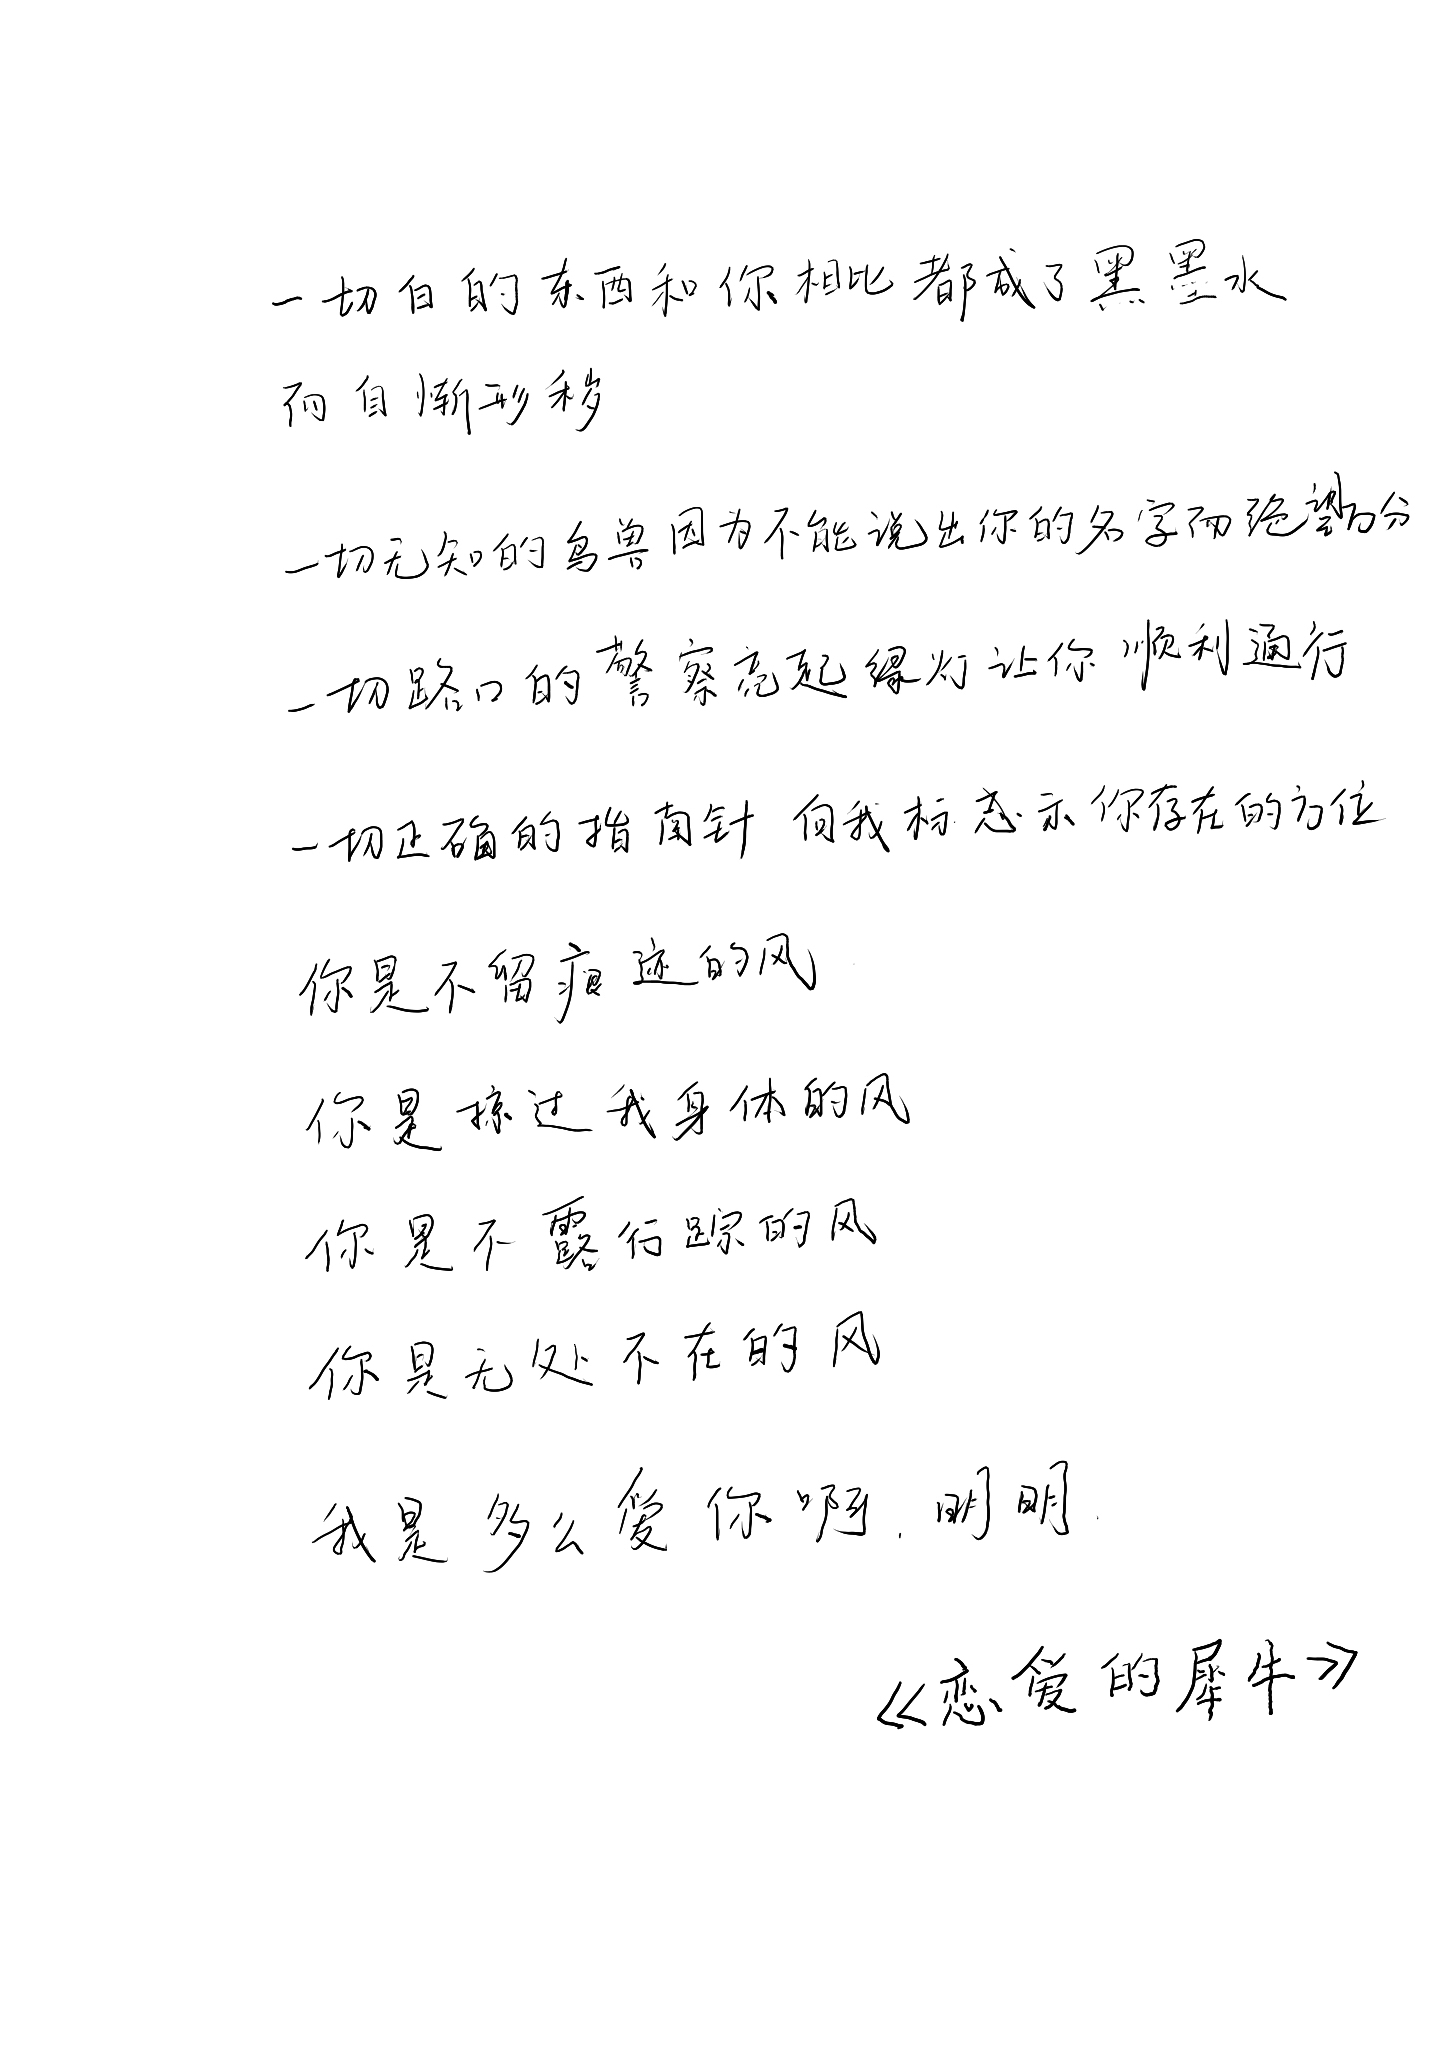 一切白的东西和你相比都成了黑墨水
而自惭形秽
一切无知的鸟兽因为不能说出你的名字而绝望万分
一切路口的警察亮起绿灯让你顺利通行
一切正确的指南针向我标志示你存在的方位
你是不留痕迹的风
你是掠过我身体的风
你是不露行踪的风
你是无处不在的风
我是多么爱你啊.明明.
《恋爱的犀牛》